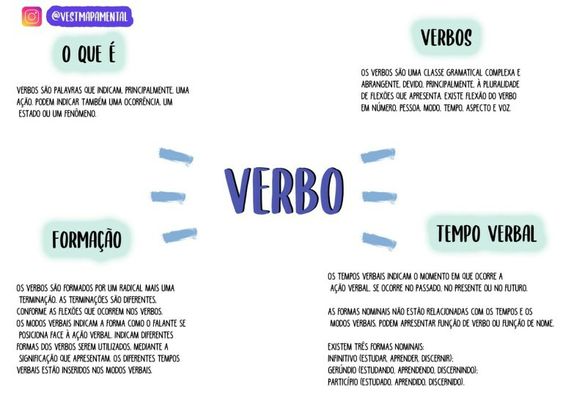 @VESTMAPAMENTAL
O QUE É
VERBOS SÃO PALAVRAS QUE INDICAM, PRINCIPALMENTE, UMA
AÇÃO. PODEM INDICAR TAMBÉM UMA OCORRÊNCIA, UM
ESTADO OU UM FENÔMENO.
VERBOS
OS VERBOS SÃO UMA CLASSE GRAMATICAL COMPLEXA E
ABRANGENTE, DEVIDO, PRINCIPALMENTE, À PLURALIDADE
DE FLEXÕES QUE APRESENTA. EXISTE FLEXÃO DO VERBO
EM NÚMERO, PESSOA, MODO, TEMPO, ASPECTO E VOZ.
VERBO
FORMAÇÃO
OS VERBOS SÃO FORMADOS POR UM RADICAL MAIS UMA
TERMINAÇÃO. AS TERMINAÇÕES SÃO DIFERENTES,
CONFORME AS FLEXÕES QUE OCORREM NOS VERBOS.
OS MODOS VERBAIS INDICAM A FORMA COMO O FALANTE SE
POSICIONA FACE À AÇÃO VERBAL. INDICAM DIFERENTES
FORMAS DOS VERBOS SEREM UTILIZADOS, MEDIANTE A
SIGNIFICAÇÃO QUE APRESENTAM. OS DIFERENTES TEMPOS
VERBAIS ESTÃO INSERIDOS NOS MODOS VERBAIS.
TEMPO VERBAL
OS TEMPOS VERBAIS INDICAM O MOMENTO EM QUE OCORRE A
AÇÃO VERBAL, SE OCORRE NO PASSADO, NO PRESENTE OU NO FUTURO.
AS FORMAS NOMINAIS NÃO ESTÃO RELACIONADAS COM OS TEMPOS E OS
MODOS VERBAIS. PODEM APRESENTAR FUNÇÃO DE VERBO OU FUNÇÃO DE NOME.
EXISTEM TRÊS FORMAS NOMINAIS:
INFINITIVO (ESTUDAR, APRENDER, DISCERNIR);
GERÚNDIO (ESTUDANDO, APRENDENDO, DISCERNINDO);
PARTICÍPIO (ESTUDADO, APRENDIDO, DISCERNIDO).